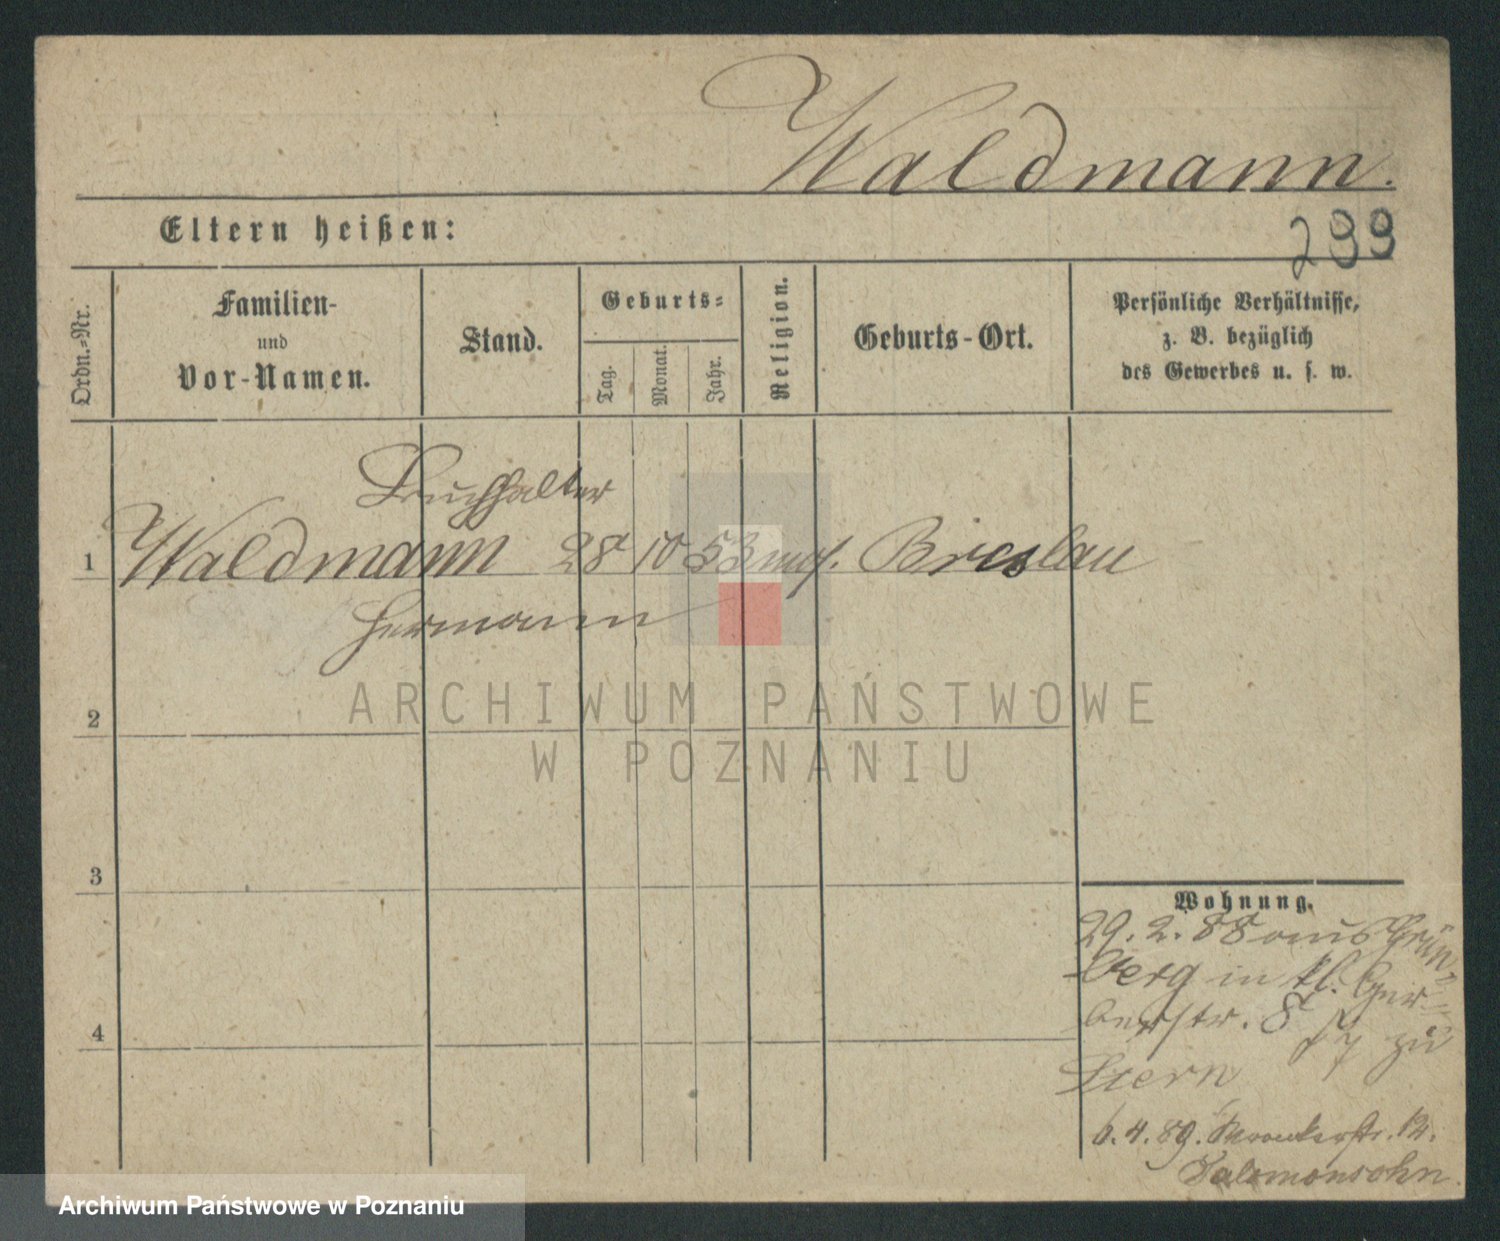 Waldmann.
Eltern heißen:
299
Ordn.-Nr.
Familien-
und
Vor-Namen.
Stand.
Geburts-
Tag.
Monat.
Jahr.
Religion.
Geburts-Ort.
Persönliche Verhältnisse,
z. B. bezüglich
des Gewerbes u. s. w.
Buchhalter
1 Waldmann 28 10 53 mos. Breslau
Hermann
2
3
4
Wohnung.
29. 2. 88 aus Grün-
berg in kl. Ger-
berstr. 8 zu
Stern
6. 4. 89. Wronkerstr. 12.
Salomonsohn.
ARCHIWUM PAŃSTWOWE
W POZNANIU
Archiwum Państwowe w Poznaniu